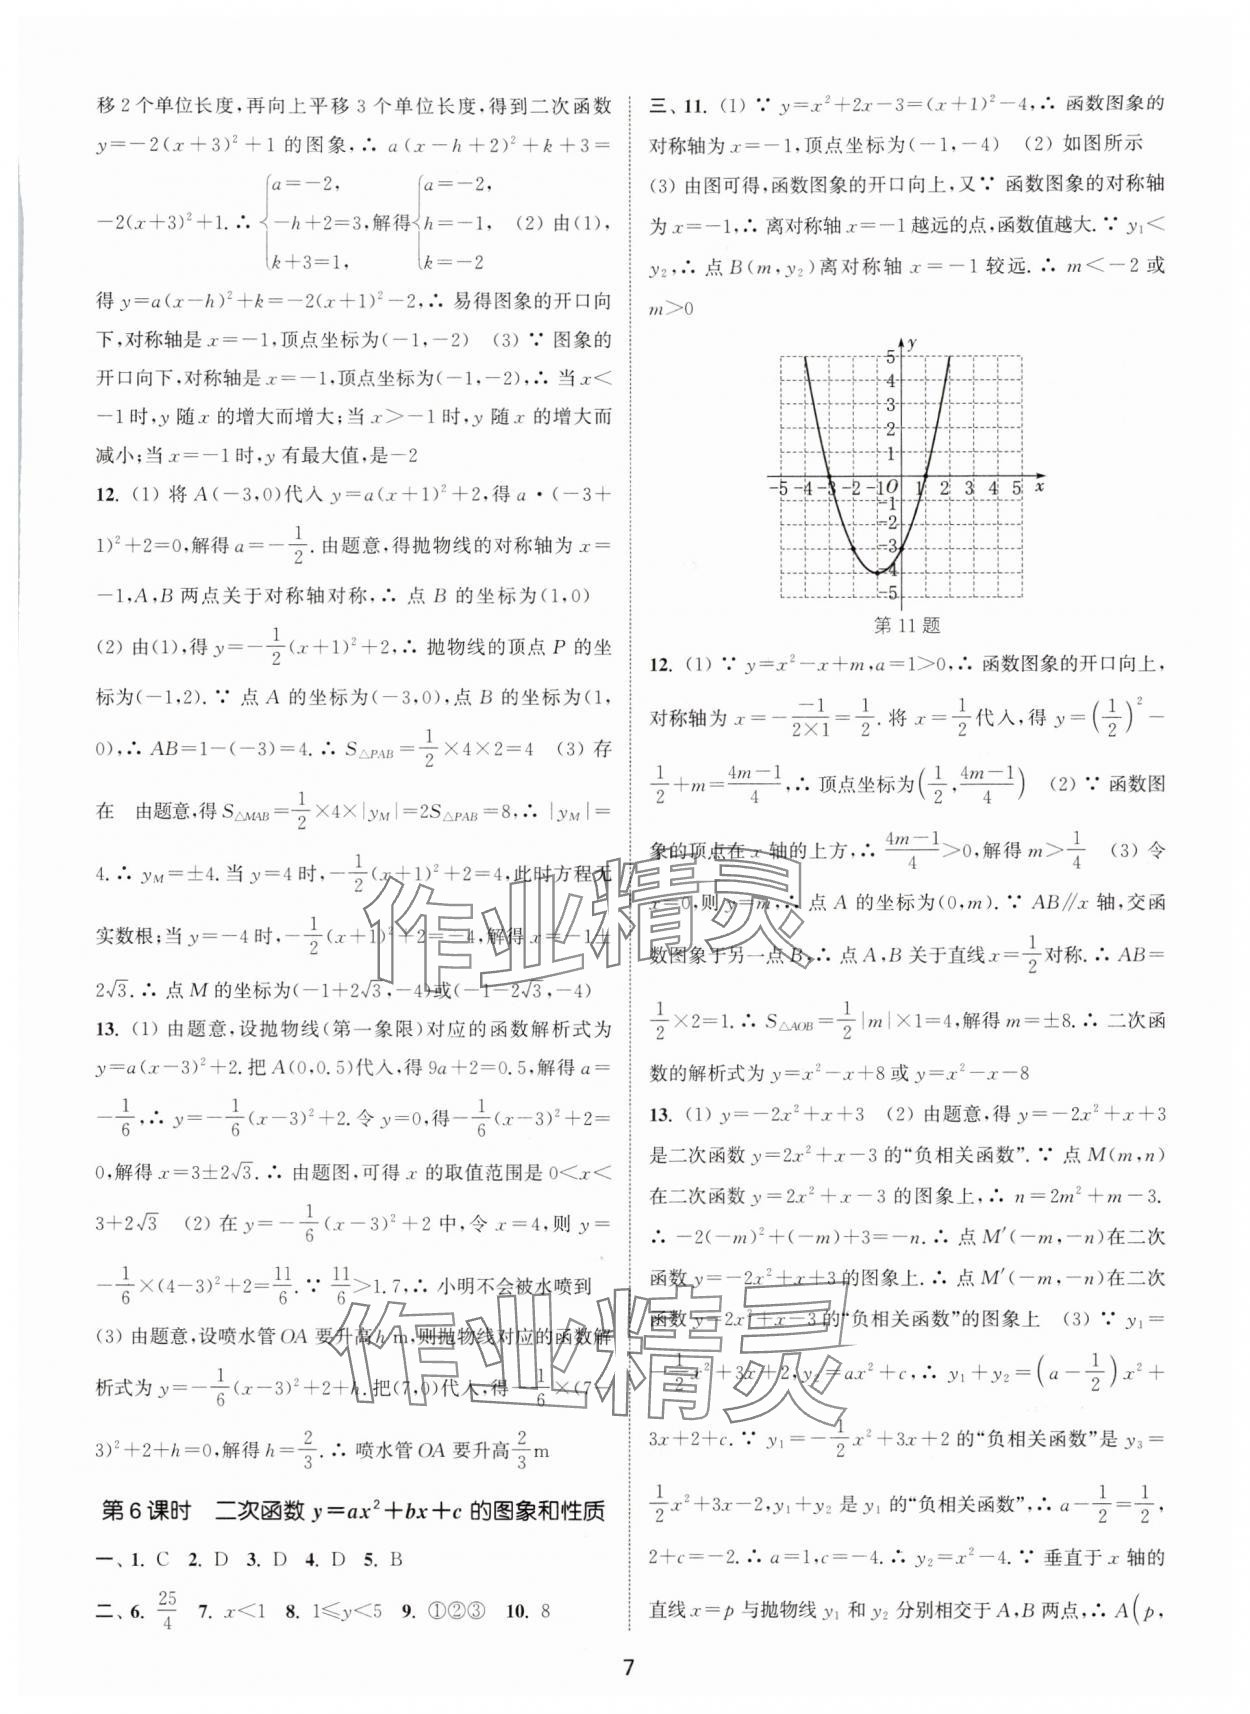 移2个单位长度,再向上平移3个单位长度,得到二次函数
y=-2(x+3)²+1的图象,∴ a(x-h+2)²+k+3=
-2(x+3)²+1.∴ {a=-2, -h+2=3, k+3=1, 解得{a=-2, h=-1, k=-2 (2) 由(1),
得 y=a(x-h)²+k=-2(x+1)²-2,∴ 易得图象的开口向
下,对称轴是 x=-1,顶点坐标为(-1,-2) (3) ∵ 图象的
开口向下,对称轴是 x=-1,顶点坐标为(-1,-2),∴ 当 x<
-1时,y 随 x 的增大而增大;当 x>-1时,y 随 x 的增大而
减小;当 x=-1时,y 有最大值,是-2
12. (1) 将 A(-3,0)代入 y=a(x+1)²+2,得 a·(-3+
1)²+2=0,解得 a=-1/2.由题意,得抛物线的对称轴为 x=
-1,A,B 两点关于对称轴对称,∴ 点 B 的坐标为(1,0)
(2) 由(1),得 y=-1/2(x+1)²+2,∴ 抛物线的顶点 P 的坐
标为(-1,2).∵ 点 A 的坐标为(-3,0),点 B 的坐标为(1,
0),∴ AB=1-(-3)=4.∴ S△PAB=1/2×4×2=4 (3) 存
在 由题意,得 S△MAB=1/2×4×|yM|=2S△PAB=8,∴ |yM|=
4.∴ yM=±4.当 y=4时,-1/2(x+1)²+2=4,此时方程无
实数根;当 y=-4时,-1/2(x+1)²+2=-4,解得 x=-1±
2√3.∴ 点 M 的坐标为(-1+2√3,-4)或(-1-2√3,-4)
13. (1) 由题意,设抛物线(第一象限)对应的函数解析式为
y=a(x-3)²+2.把 A(0,0.5)代入,得 9a+2=0.5,解得 a=
-1/6,∴ y=-1/6(x-3)²+2.令 y=0,得-1/6(x-3)²+2=
0,解得 x=3±2√3.∴ 由题图,可得 x 的取值范围是 0<x<
3+2√3 (2) 在 y=-1/6(x-3)²+2中,令 x=4,则 y=
-1/6×(4-3)²+2=11/6.∵ 11/6>1.7,∴ 小明不会被水喷到
(3) 由题意,设喷水管 OA 要升高 h m,则抛物线对应的函数解
析式为 y=-1/6(x-3)²+2+h.把(7,0)代入,得-1/6×(7-
3)²+2+h=0,解得 h=2/3.∴ 喷水管 OA 要升高2/3 m
第6课时 二次函数 y=ax²+bx+c 的图象和性质
一、1. C 2. D 3. D 4. D 5. B
二、6. 25/4 7. x<1 8. 1≤y<5 9. ①②③ 10. 8
三、11. (1) ∵ y=x²+2x-3=(x+1)²-4,∴ 函数图象的
对称轴为 x=-1,顶点坐标为(-1,-4) (2) 如图所示
(3) 由图可得,函数图象的开口向上,又∵ 函数图象的对称轴
为 x=-1,∴ 离对称轴 x=-1越远的点,函数值越大.∵ y₁<
y₂,∴ 点 B(m,y₂)离对称轴 x=-1较远.∴ m<-2或
m>0
y
5
4
3
2
1
-5 -4 -3 -2 -1 O 1 2 3 4 5 x
-1
-2
-3
-4
-5
第11题
12. (1) ∵ y=x²-x+m,a=1>0,∴ 函数图象的开口向上,
对称轴为 x=-(-1)/(2×1)=1/2.将 x=1/2代入,得 y=(1/2)²-
1/2+m=(4m-1)/4,∴ 顶点坐标为(1/2,(4m-1)/4) (2) ∵ 函数图
象的顶点在 x 轴的上方,∴ (4m-1)/4>0,解得 m>1/4 (3) 令
x=0,则 y=m,∴ 点 A 的坐标为(0,m).∵ AB∥x 轴,交函
数图象于另一点 B,∴ 点 A,B 关于直线 x=1/2对称.∴ AB=
1/2×2=1.∴ S△AOB=1/2|m|×1=4,解得 m=±8.∴ 二次函
数的解析式为 y=x²-x+8或 y=x²-x-8
13. (1) y=-2x²+x+3 (2) 由题意,得 y=-2x²+x+3
是二次函数 y=2x²+x-3的“负相关函数”.∵ 点 M(m,n)
在二次函数 y=2x²+x-3的图象上,∴ n=2m²+m-3.
∴ -2(-m)²+(-m)+3=-n.∴ 点 M′(-m,-n)在二次
函数 y=-2x²+x+3的图象上.∴ 点 M′(-m,-n)在二次
函数 y=2x²+x-3的“负相关函数”的图象上 (3) ∵ y₁=
-1/2x²+3x+2,y₂=ax²+c,∴ y₁+y₂=(a-1/2)x²+
3x+2+c.∵ y₁=-1/2x²+3x+2的“负相关函数”是 y₃=
1/2x²+3x-2,y₁+y₂是 y₁的“负相关函数”,∴ a-1/2=1/2,
2+c=-2.∴ a=1,c=-4.∴ y₂=x²-4.∵ 垂直于 x 轴的
直线 x=p 与抛物线 y₁和 y₂分别相交于 A,B 两点,∴ A(p,
7
作业精灵
作业精灵